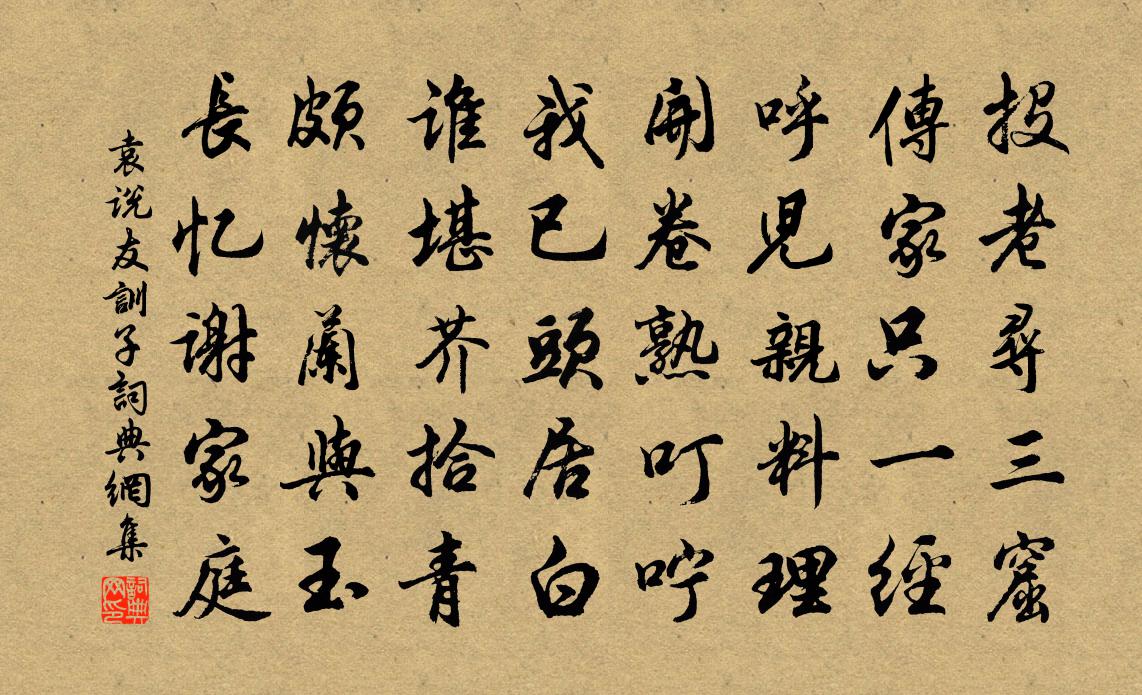 投老尋三窟
傳家只一經
呼兒親料理
開卷熟叮咛
我已頭居白
谁堪芥拾青
頗懷蘭與玉
長忆谢家庭
袁说友訓子詞典網集
詞典网印